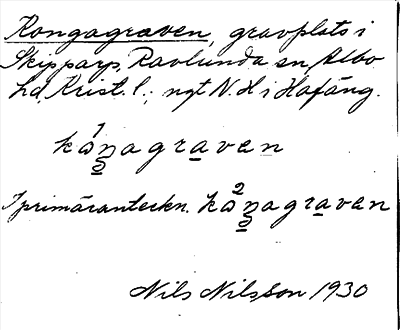 Kongagraven, gravplats i
Skipparp, Ravlunda sn, Albo
hd, Krist. l.; ngt N. H i Hafäng.
kåŋagraven
I primäranteckn. kåŋagraven
Nils Nilsson 1930